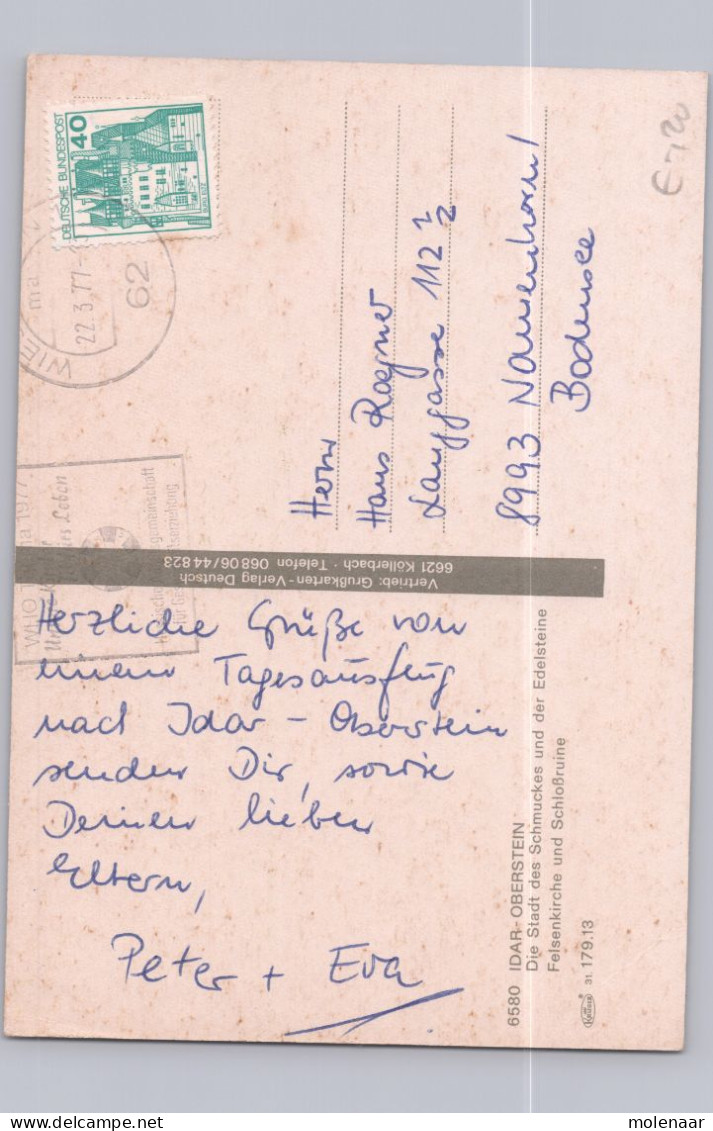 Herzliche Grüße von
einem Tagesausflug
nach Idar-Oberstein
senden Dir, sowie
Deinen lieben
Eltern,
Peter + Eva
Herrn
Hans
Langgasse 112 1/2
8993 Nonnenhorn/
Bodensee
DEUTSCHE BUNDESPOST
40
22.3.77
62
ma 1977
Leben
gemeinschaft
Vertrieb: Grußkarten-Verlag Deutsch
6621 Köllerbach · Telefon 06806/44823
6580 IDAR-OBERSTEIN
Die Stadt des Schmuckes und der Edelsteine
Felsenkirche und Schloßruine
31. 179.13
molenaar